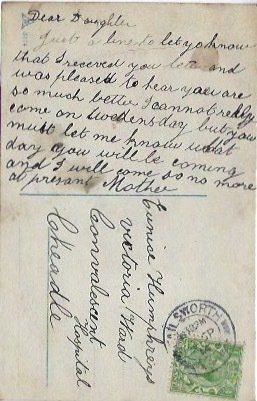 Dear Daughter
Just a line to let yo know
that I receved you let and
was pleased to hear you are
so much better I cannot really
come on Wedensday but you
must let me know what
day you will be coming
and I will come so no more
at present Mother
Eunice Humphrys
Victoria Ward
Convalescent
Hospital
Cheadle
AILSWORTH